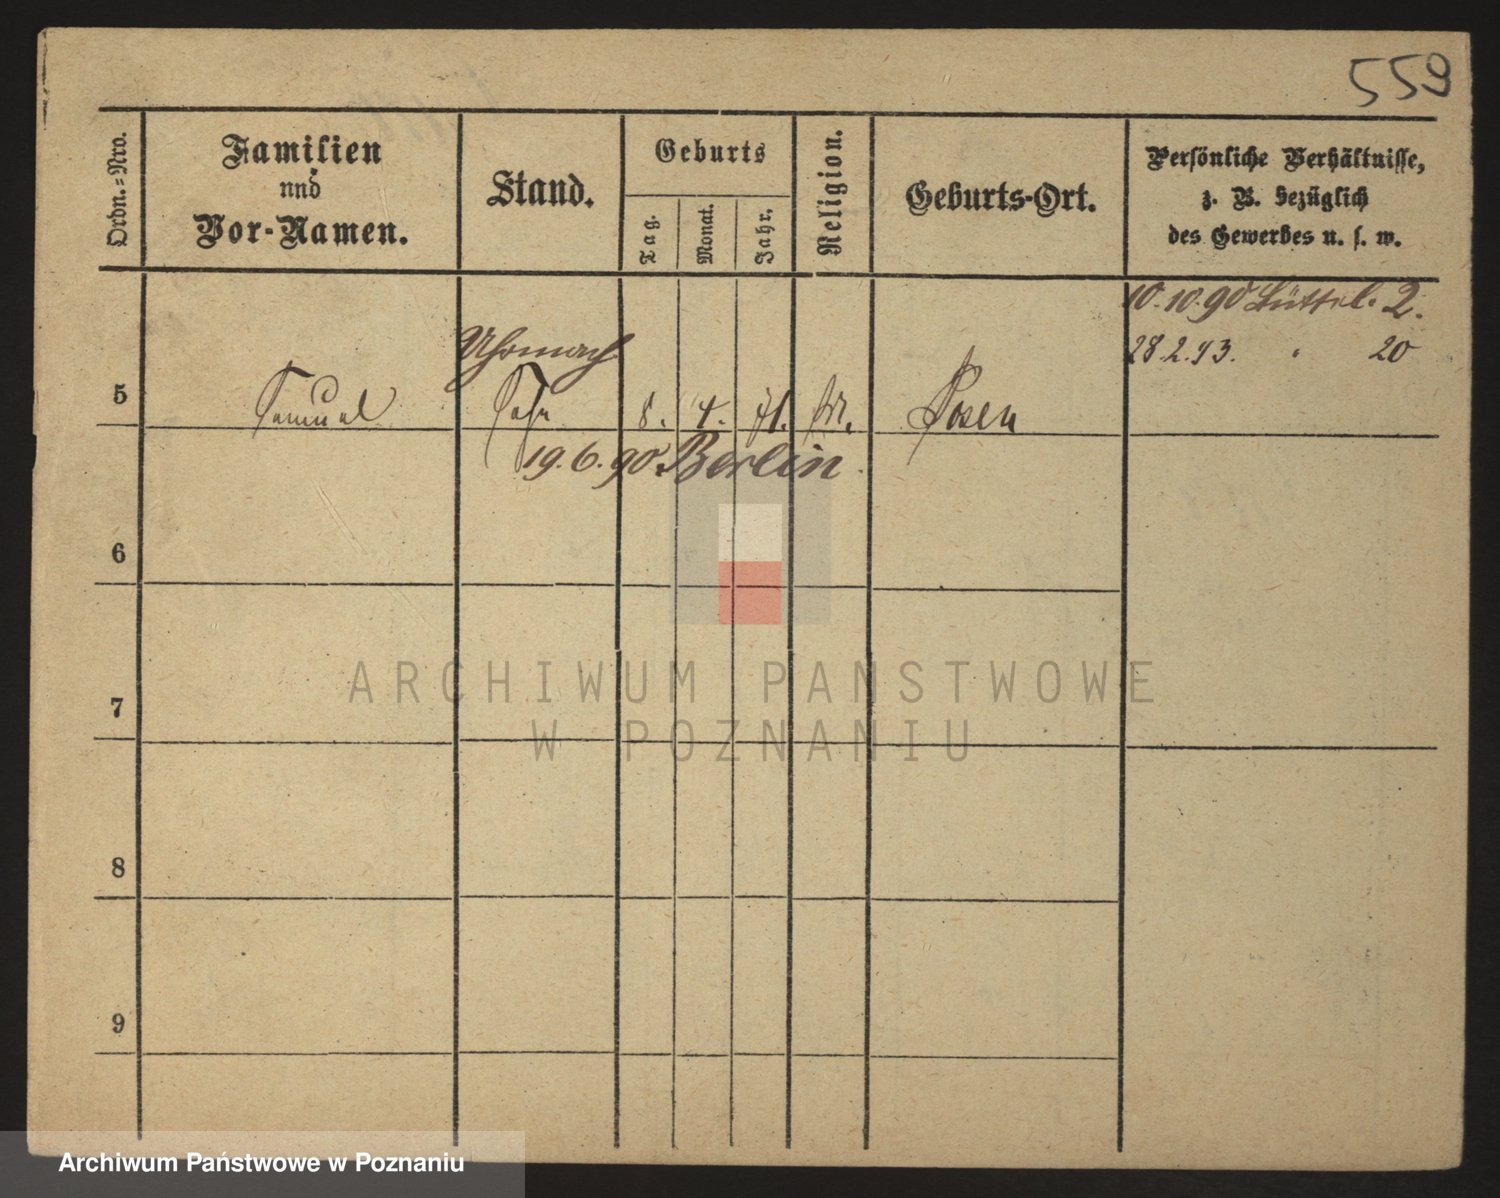 559
Ordn.-Nro.
Familien
und
Vor-Namen.
Stand.
Geburts
Tag.
Monat.
Jahr.
Religion.
Geburts-Ort.
Persönliche Verhältnisse,
z. B. bezüglich
des Gewerbes u. s. w.
10.10.90 Büttel. 2.
28.2.93. " 20
Uhrmach
5 Samuel Sohn 8. 4. 71. M. Posen
19.6.90. Berlin.
6
7
8
9
ARCHIWUM PAŃSTWOWE
W POZNANIU
Archiwum Państwowe w Poznaniu